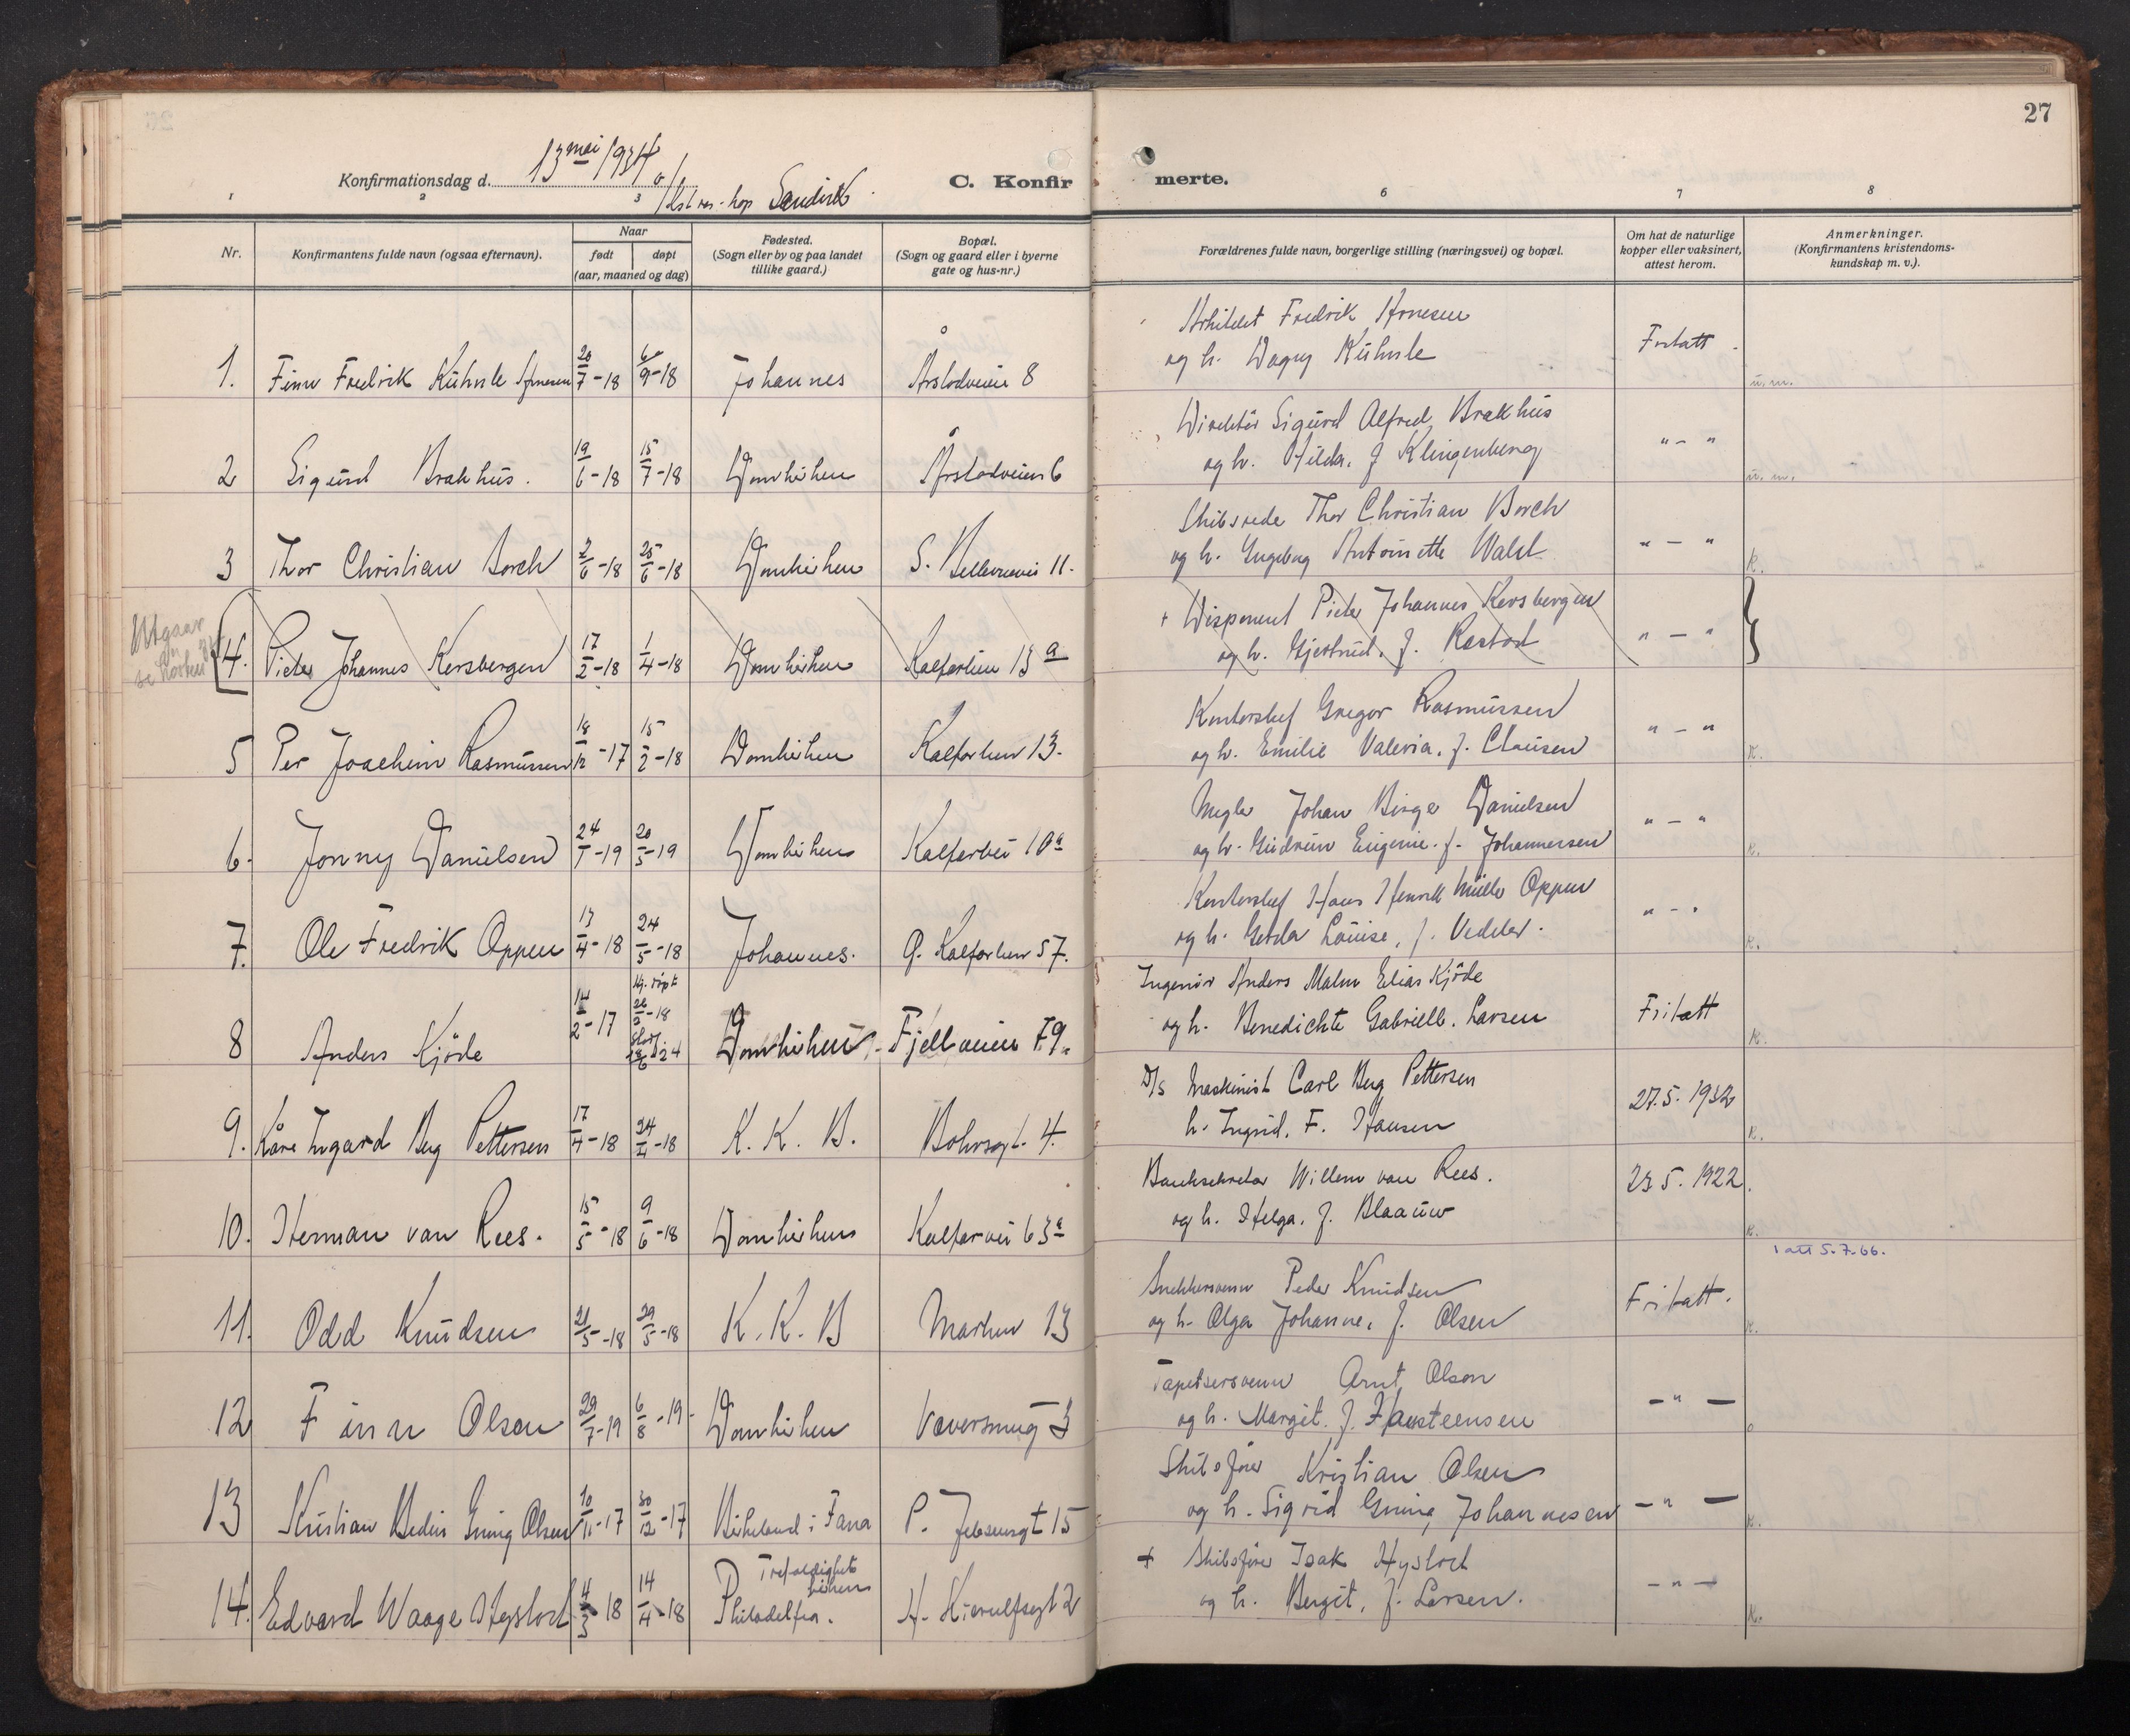 27
13 mai 1934
Konfirmationsdag d.
C. Konfir
merte.
1 2 3 6 7 8
Nr.
Konfirmantens fulde navn (ogsaa efternavn).
Naar
født døpt
(aar, maaned og dag)
Fødested.
(Sogn eller by og paa landet
tillike gaard.)
Bopæl.
(Sogn og gaard eller i byerne
gate og hus-nr.)
Forældrenes fulde navn, borgerlige stilling (næringsvei) og bopæl.
Om hat de naturlige
kopper eller vaksinert,
attest herom.
Anmerkninger.
(Konfirmantens kristendoms-
kundskap m. v.).
Arkitekt Fredrik Arnesen
og h. Dagny Kühnle
Fritatt
1. Finn Fredrik Kühnle Arnesen 20/7-18 6/9-18 Johannes Årstadveien 8
u. m.
Direktør Sigurd Alfred Brakhus
og h. Hilda. f Klingenberg
" - "
2 Sigurd Brakhus. 19/6-18 15/7-18 Domkirken Årstadveien 6
u. m.
Skibsrede Thor Christian Borch
og h. Ingeborg Antoinette
" - "
3 Thor Christian Borch 2/6-18 25/6-18 Domkirken 11.
K.
Utgaar
+ Disponent Pieter Johannes Kersbergen
og h. Gjertrud. f.
" - "
4. Pieter Johannes Kersbergen 17/2-18 1/4-18 Domkirken Kalfarlien 13 a
Kontorchef Gregor Rasmussen
og h. Emilie Valeria. f. Clausen
" - "
5 Per Joachim Rasmussen 18/12-17 15/2-18 Domkirken Kalfarlien 13.
K.
Megler Johan Birger Danielsen
og h. Gudrun Eugenie. f. Johannessen
" - "
6. Jonny Danielsen 24/1-19 20/5-19 Domkirken Kalfarvei 10 a
K.
Kontorchef Hans Henrik Müller Oppen
og h. Gerda Louise, f. Vedeler.
" - "
7. Ole Fredrik Oppen 13/4-18 24/5-18 Johannes. G. Kalfarlien 57.
K.
Ingeniør Anders Malm Elias Kjøde
og h. Benedichte Gabrielle. Larsen
Fritatt
8 Anders Kjøde 14/2-17 Domkirken Fjellveien 79.
K.
D/S Maskinist Carl Berg Pettersen
h. Ingrid. F. Hansen
27.5.1932
9. Kåre Ingard Berg Pettersen 17/4-18 24/4-18 K. K. B. Bohrsgt. 4.
K.
Banksekretær Willem van Rees.
og h. Helga. f. Blaauw
23.5.1922.
10. Herman van Rees. 15/5-18 9/6-18 Domkirken Kalfarvei 63 a
K.
1 att 5.7.66.
Snekkersvenn Peder Knudsen
og h. Olga Johanne, f. Olsen
Fritatt.
11. Odd Knudsen 21/5-18 29/5-18 K. K. B Marken 13
K.
Tapetsersvenn Arnt Olson
og h. Margit. f. Hausteensen
- " -
12 Finn Olson 29/7-19 6/8-19 Domkirken Vaversmug 3
Skibsfører Kristian Olsen
og h. Sigrid Guning Johannesen
- " -
13 Kristian Guning Olsen 10/11-17 30/12-17 Birkeland i Fana P. Jebsensgt 15
K.
+ Skibsfører Isak Hystad
og h. Bergit, f. Larsen.
- " -
14. Edvard Waage Hystad 4/3-18 14/4-18 Trefoldighets kirken Philadelfia. H. Hierulfsgt 2
K.